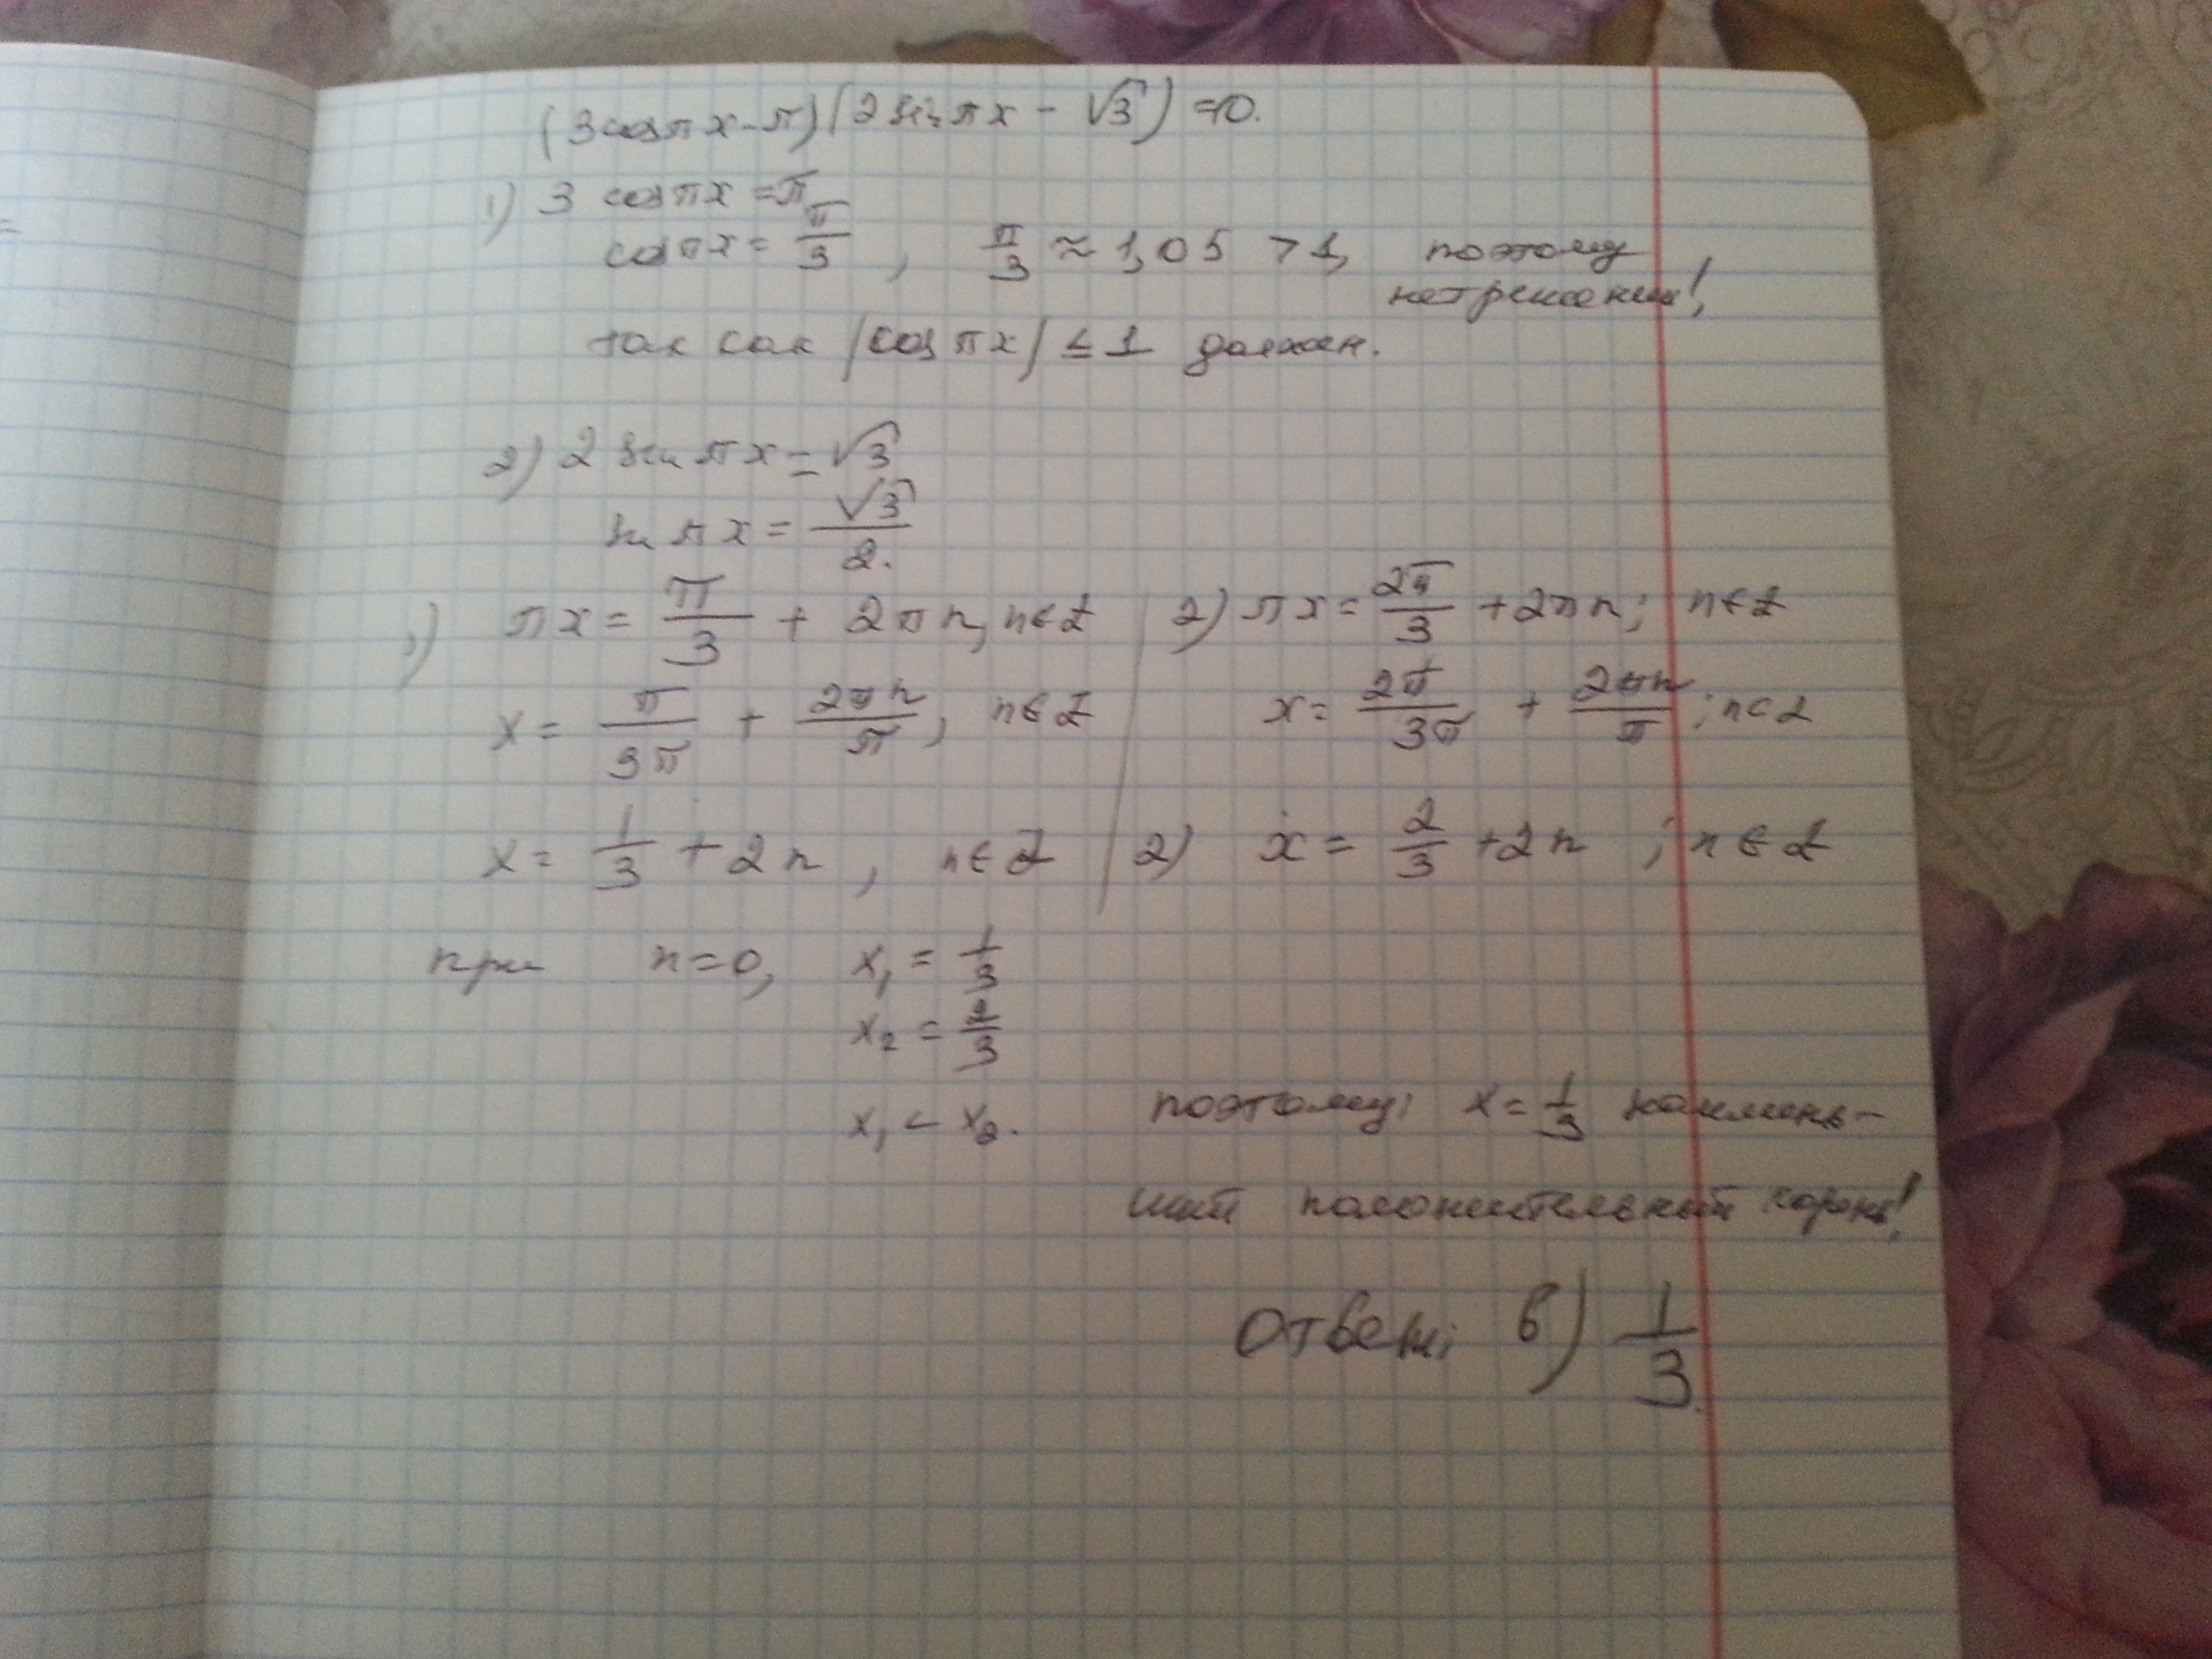 (3cosπx-π)(2sinπx - √3) = 0.
1) 3 cosπx = π
cosπx = π/3 , π/3 ≈ 1,05 > 1, поэтому
нет решения!,
так как |cosπx| ≤ 1 должен.
2) 2 sinπx = √3
sinπx = √3/2.
1) πx = π/3 + 2πn, n∈Z 2) πx = 2π/3 + 2πn; n∈Z
x = π/3π + 2πn/π, n∈Z x = 2π/3π + 2πn/π; n∈Z
x = 1/3 + 2n , n∈Z 2) x = 2/3 + 2n ; n∈Z
при n=0, x₁ = 1/3
x₂ = 2/3
x₁ < x₂. поэтому: x = 1/3 наимень-
ший положительный корень!
Ответ: в) 1/3.